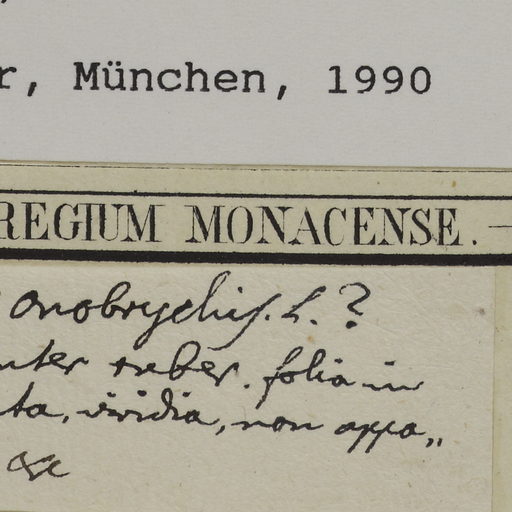 r, München, 1990
REGIUM MONACENSE.
onobrychis. L. ?
nter tuber. folia in
ta, viridia, non appa„
&c